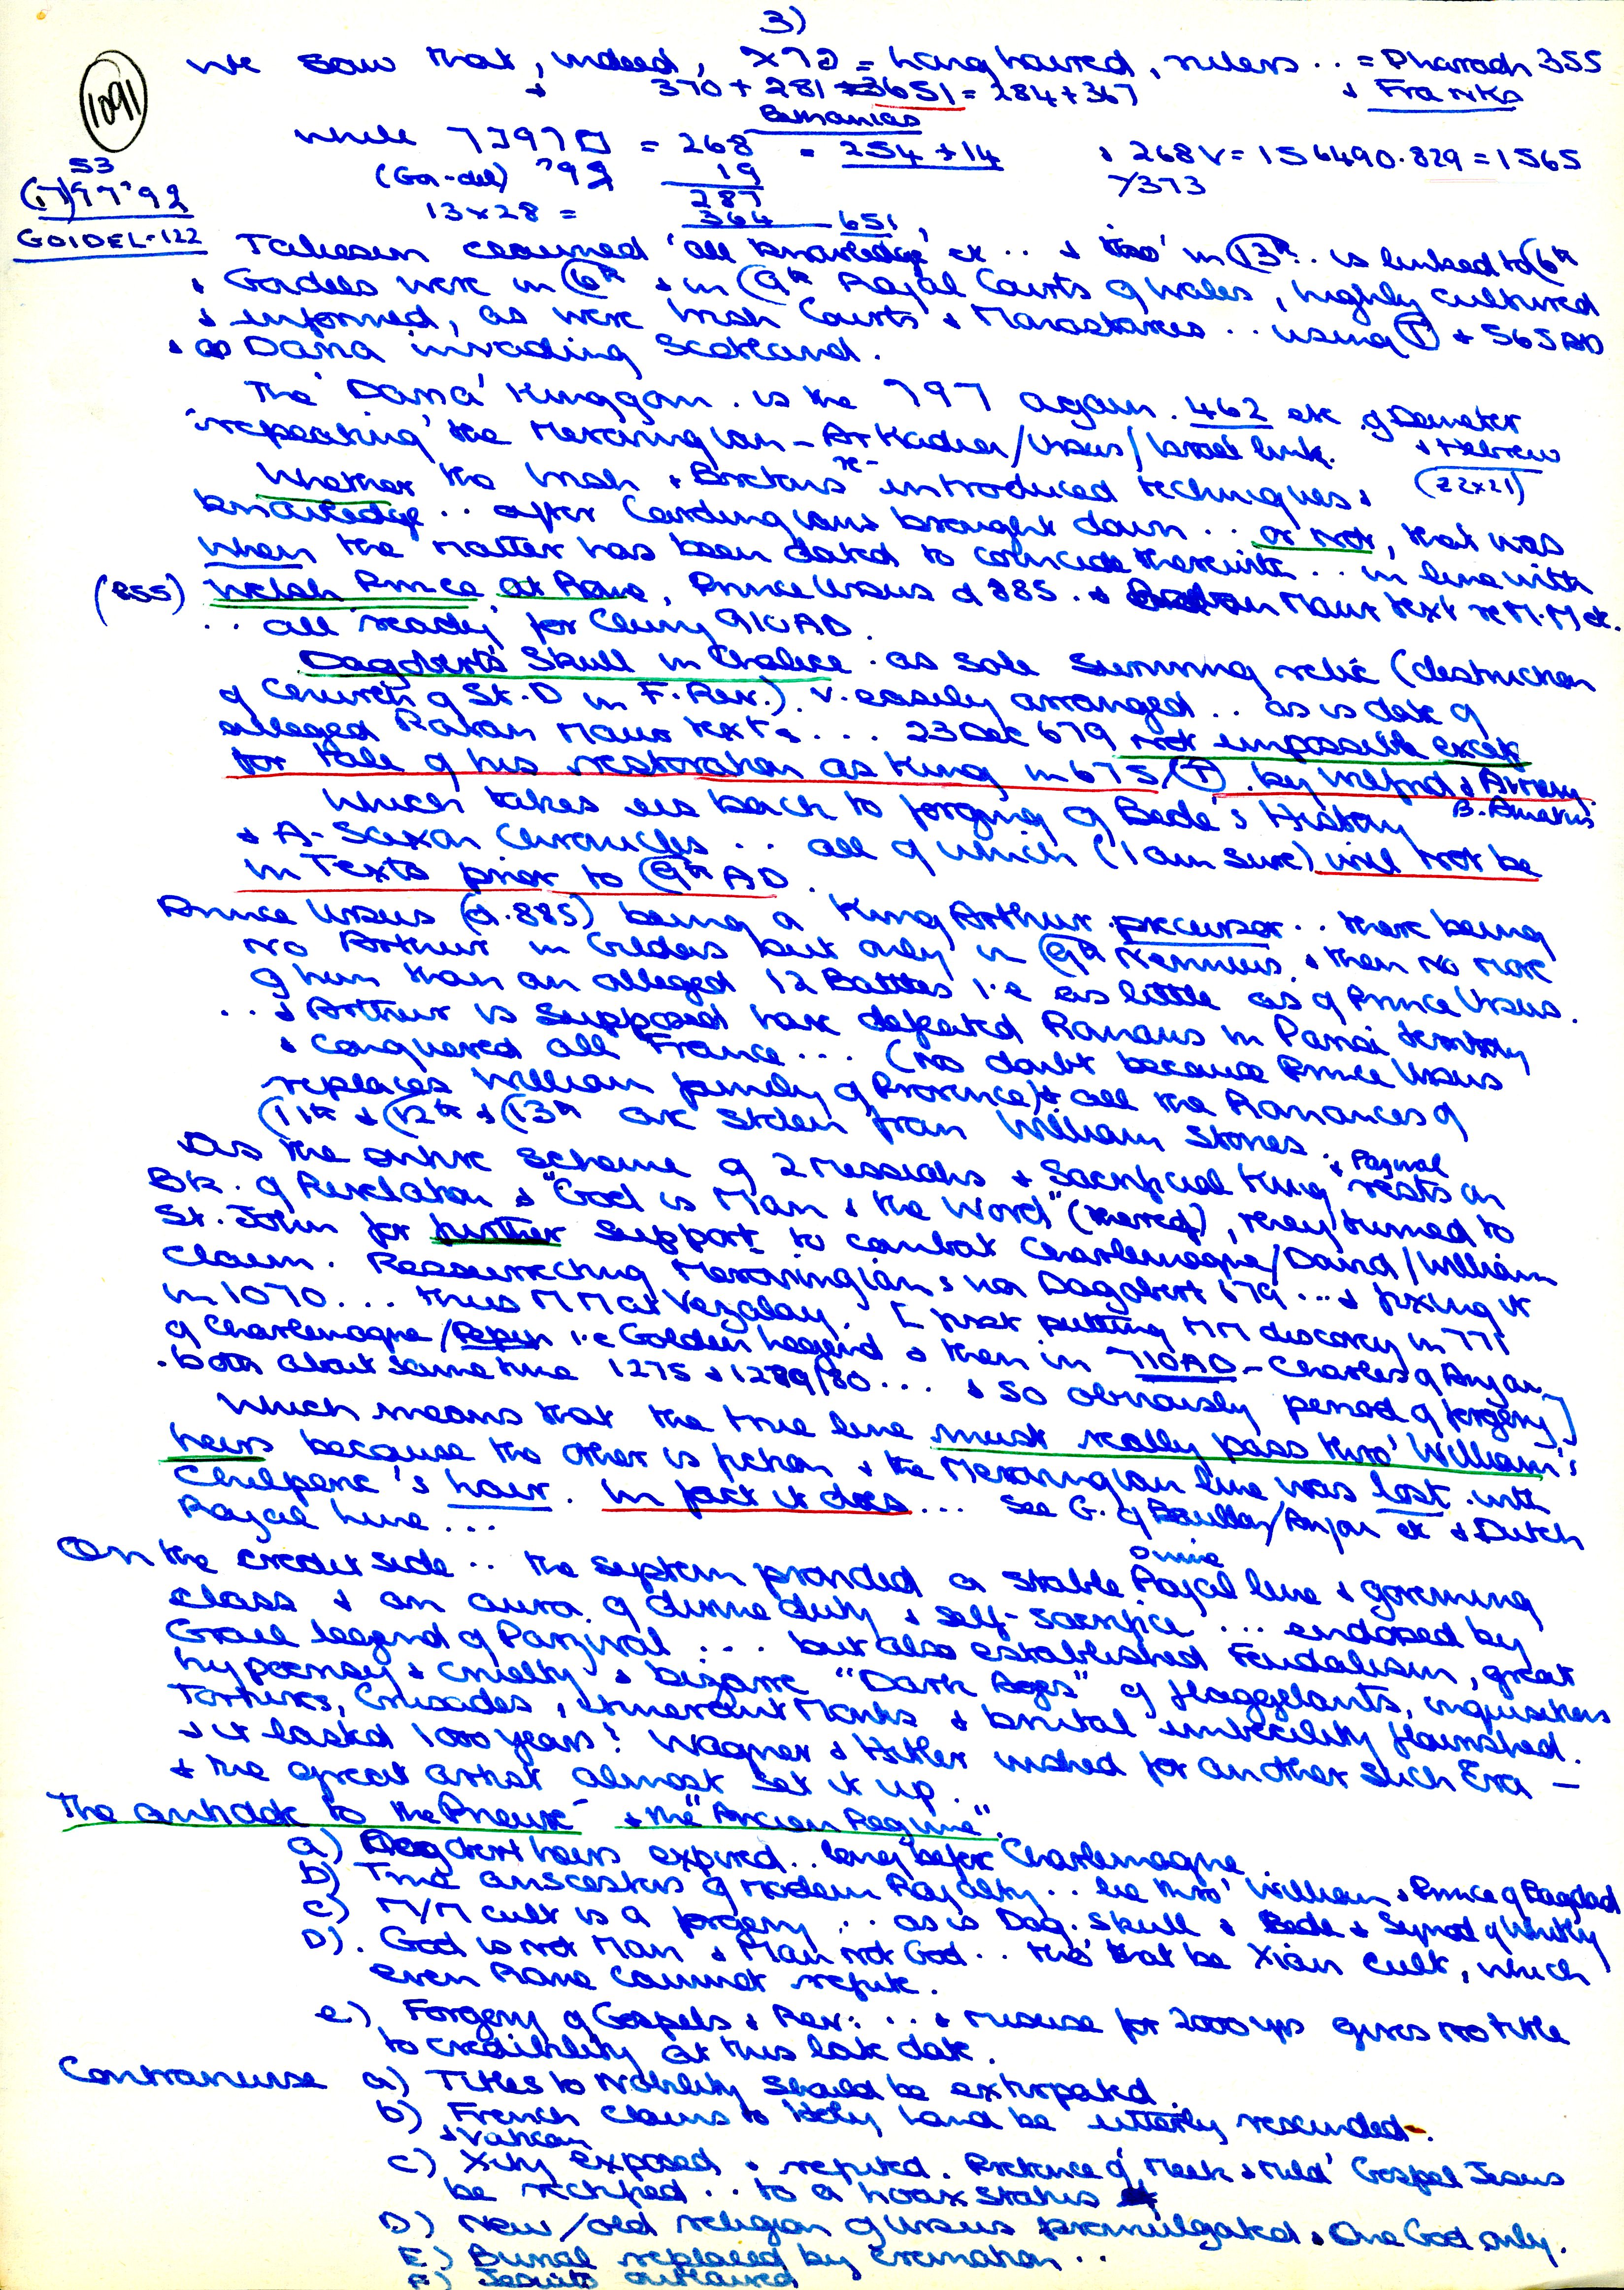 3)
1091
We saw that, indeed, = Long haired, rulers .. = Pharaoh 355
370 + 281 = 651 = 284 + 367 + Franks
Romanias
while = 268 = 254 + 14 + 268 V = 156490.829 = 1565
(Go-del) 19 7373
53
287
13 x 28 = 364 651
GOIDEL-122
Taliesin claimed 'all knowledge' etc .. + 'thro' in 13th .. is linked to 6th
+ Goidels were in 6th + in 9th Royal Courts of Wales, highly cultured
+ informed, as were Irish Courts + Monasteries .. using T + 565 AD
+ as Dana invading Scotland.
The 'Dana' Kingdom. is the 797 again. 462 etc of Demeter
+ Hebrew
'repeating' the Merovingian - Arkadia/Ursus/Israel link.
(22x21)
Whether the Irish + Bretons re-introduced techniques +
knowledge .. after Carolingians brought down .. or not, that was
when the matter has been dated to coincide therewith .. in line with
(855) Welsh Prince at Rome, Prince Ursus d 885. + Raban Maur text re M.M etc.
.. all 'ready' for Cluny 910 AD.
Dagobert's Skull in Chalice. as sole surviving relic (destruction
of Church of St. D in F. Rev.). v. easily arranged .. as is date of
alleged Raban Maur text. ... 23 Dec 679 not impossible except
for tale of his restoration as King in 675/(T) by Wilfrid + Army.
B. Amatus
Which takes us back to forging of Bede's History
+ A-Saxon Chronicles .. all of which (I am sure) will not be
in Texts prior to 9th AD.
Prince Ursus (d.885) being a King Arthur precursor .. there being
no Arthur in Gildas but only in 9th Nennius + then no more
of him than an alleged 12 Battles i.e as little as of Prince Ursus.
.. + Arthur is supposed have defeated Romans in Parisi territory
+ conquered all France ... (no doubt because Prince Ursus
replaces William family of Provence) + all the Romances of
11th + 12th + 13th are stolen from William Stories.
+ Parzival
As the entire scheme of 2 Messiahs + Sacrificial King rests on
Bk. of Revelation + "God is Man + the Word" (thered), they turned to
St. John for further support to combat Charlemagne/David/William
claim. Resurrecting Merovingians via Dagobert 679 ... + fixing it
in 1070 ... thus MM at Vezalay. [first putting MM discovery in 771
of Charlemagne/Pepin i.e Golden Legend + then in 710 AD - Charles of Anjou.
. both about same time 1275 + 1279/80 ... + so obviously period of forgery]
Which means that the true line must really pass thro' William's
heirs because the other is fiction + the Merovingian line was lost with
Chilperic's hair. In fact it does ... See G. of Bouillon/Anjou etc + Dutch
Royal line ...
Divine
On the credit side .. the system provided a stable Royal line + governing
class + an aura of divine duty + self-sacrifice ... endorsed by
Grail legend of Parzival ... but also established Feudalism, great
hypocrisy + cruelty + bizarre "Dark Ages" of flaggelants, inquisitions
Tortures, Crusades, itinerant Monks + brutal imbecility flourished.
+ it lasted 1000 years! Wagner + Hitler wished for another such Era -
+ the great artist almost set it up.
The antidote to the Prieure + the "Ancien Regime".
a) Dagobert heirs expired .. long before Charlemagne.
b) True ancestors of modern Royalty .. lie thro' William + Prince of Bagdad
c) M/M cult is a forgery .. as is Dag. Skull + Bede + Synod of Whitby
D). God is not Man + Man not God .. tho' that be Xian cult, which
even Rome cannot refute.
e) Forgery of Gospels + Rev: .. + misuse for 2000 yrs gives no title
to credibility at this late date.
Contrariwise a) Titles to Nobility should be extirpated.
b) French claims to Holy Land be utterly rescinded.
+ Vatican
c) Xity exposed + refuted. Pretence of 'Meek + Mild' Gospel Jesus
be rectified .. to a hoax status
D) New/old religion of Ursus promulgated + One God only.
E) Burial replaced by cremation ..
F) Jesuits outlawed